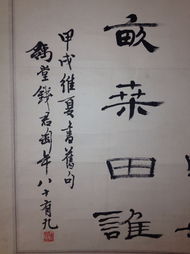 畝桑田誰
甲戌維夏書舊句
豫堂錢君匋年八十有九